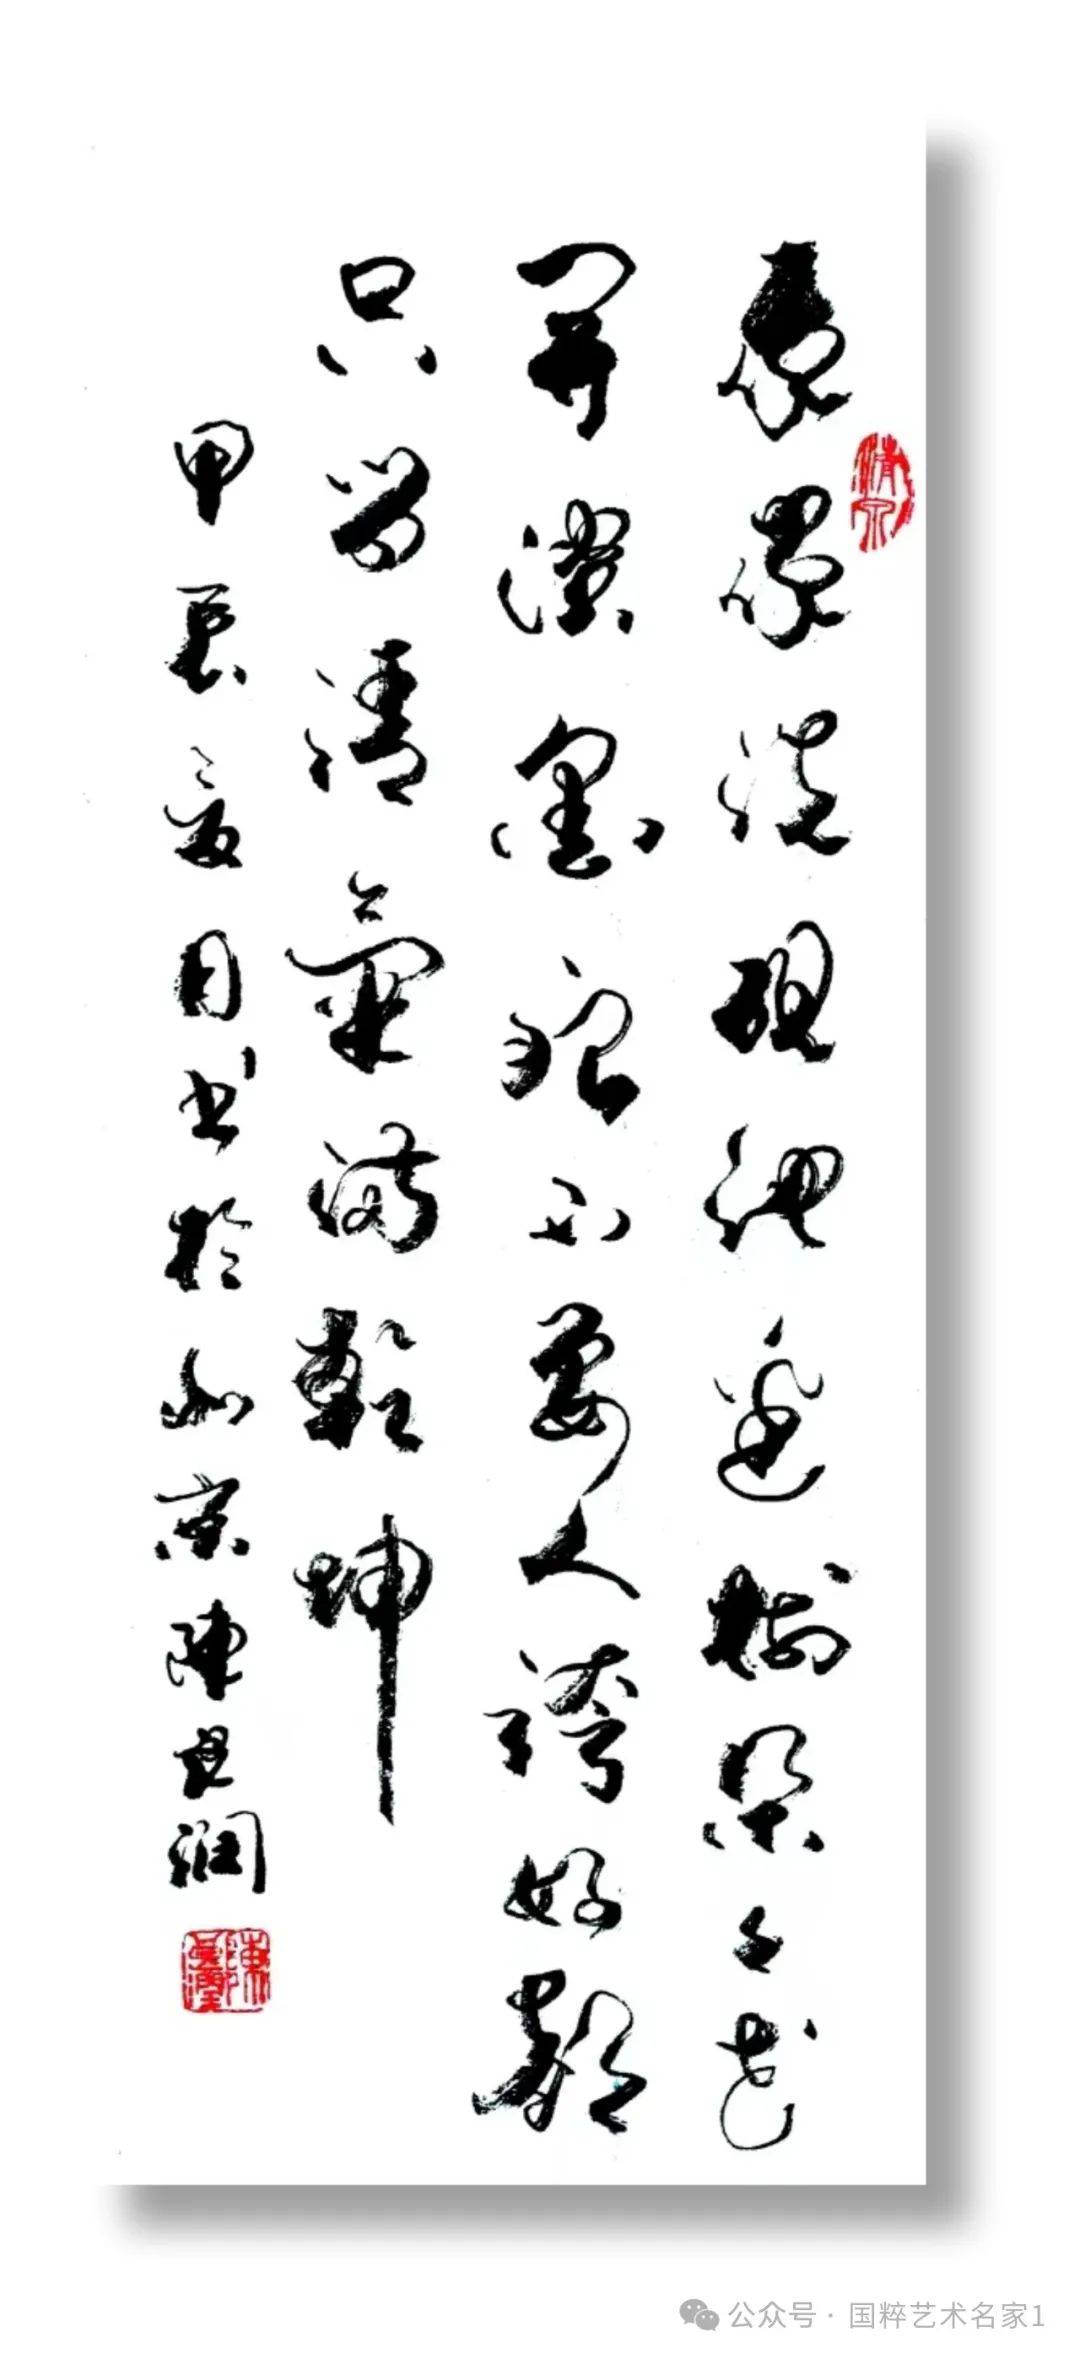 吾家洗砚池边树朵々花
开淡墨痕不要人夸好颜
只留清气满乾坤
甲辰夏月书於北京陈良润
公众号·国粹艺术名家1